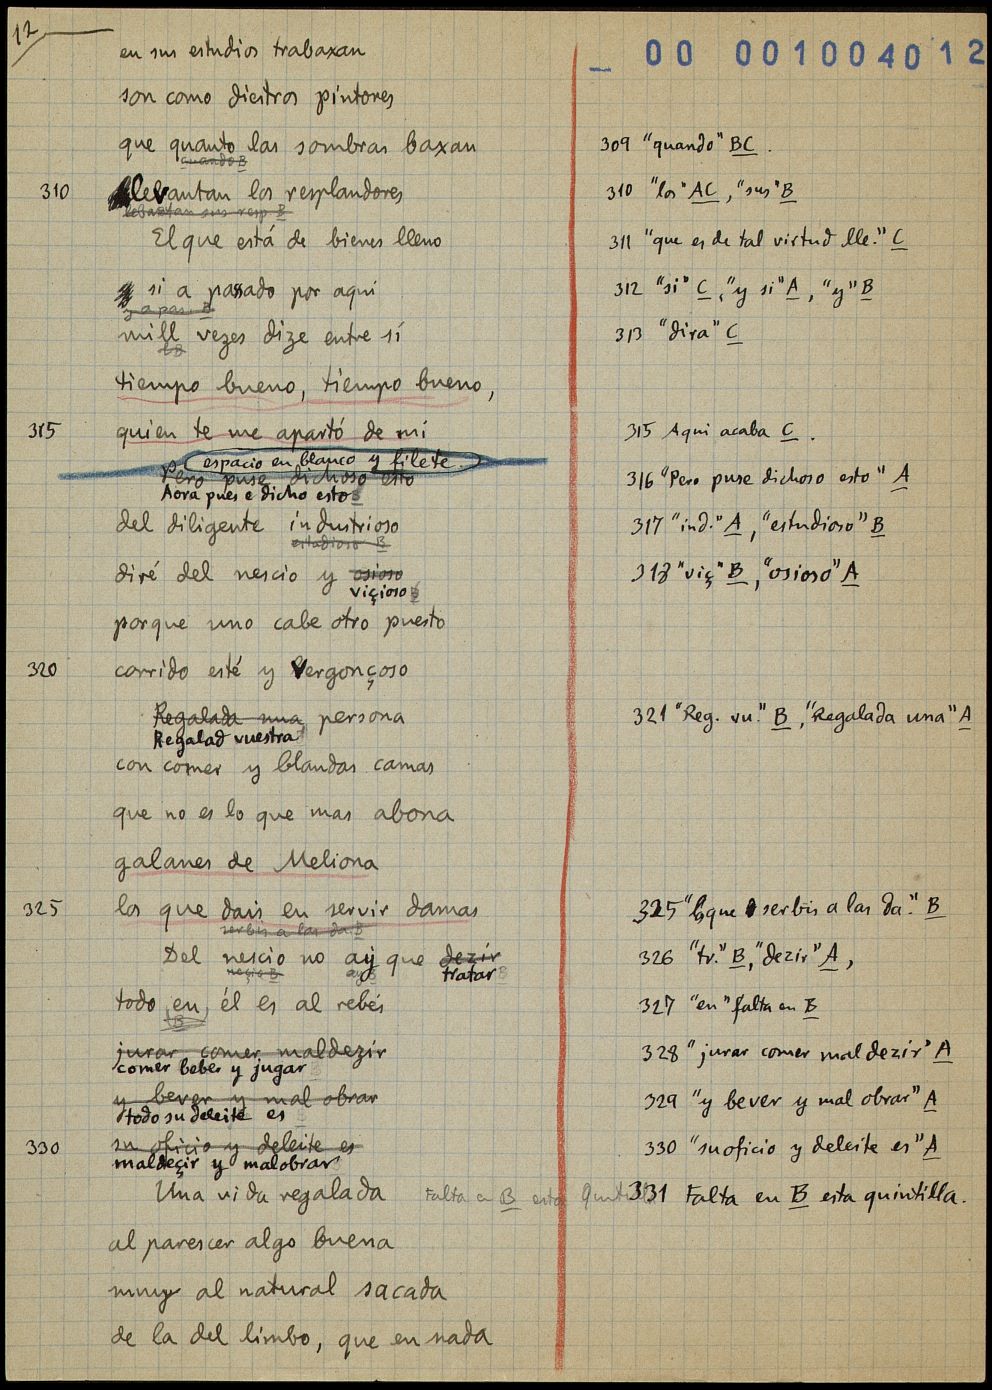 12
00 001004012
en sus estudios trabaxan
son como diestros pintores
que quanto las sombras baxan
quando B
309 "quando" BC.
310 llevantan los resplandores
lebantan sus resp B
310 "los" AC, "sus" B
El que está de bienes lleno
311 "que es de tal virtud lle." C
si a pasado por aqui
y a pas. B
312 "si" C, "y si" A, "y" B
mill vezes dize entre sí
313 "dira" C
tiempo bueno, tiempo bueno,
315 quien te me apartó de mi
315 Aqui acaba C.
espacio en blanco y filete
Pero puse dichoso esto
Aora pues e dicho esto B
316 "Pero puse dichoso esto" A
del diligente industrioso
estudioso B
317 "ind." A, "estudioso" B
diré del nescio y osioso
viçioso B
318 "viç" B, "osioso" A
porque uno cabe otro puesto
320 corrido esté y vergonçoso
Regalada una persona
Regalad vuestra
321 "Reg. vu." B, "Regalada una" A
con comer y blandas camas
que no es lo que mas abona
galanes de Meliona
325 los que dais en servir damas
serbis a las da B
325 "los que serbis a las da." B
Del nescio no ay que dezir
neçio B
tratar B
326 "tr." B, "dezir" A,
todo en él es al rebés
B
327 "en" falta en B
jurar comer maldezir
comer beber y jugar
328 "jurar comer maldezir" A
y bever y mal obrar
todo su deleite es
329 "y bever y mal obrar" A
330 su oficio y deleite es
maldeçir y mal obrar
330 "su oficio y deleite es" A
Una vida regalada
Falta en B esta quintilla
331 Falta en B esta quintilla.
al parescer algo buena
muy al natural sacada
de la del limbo, que en nada